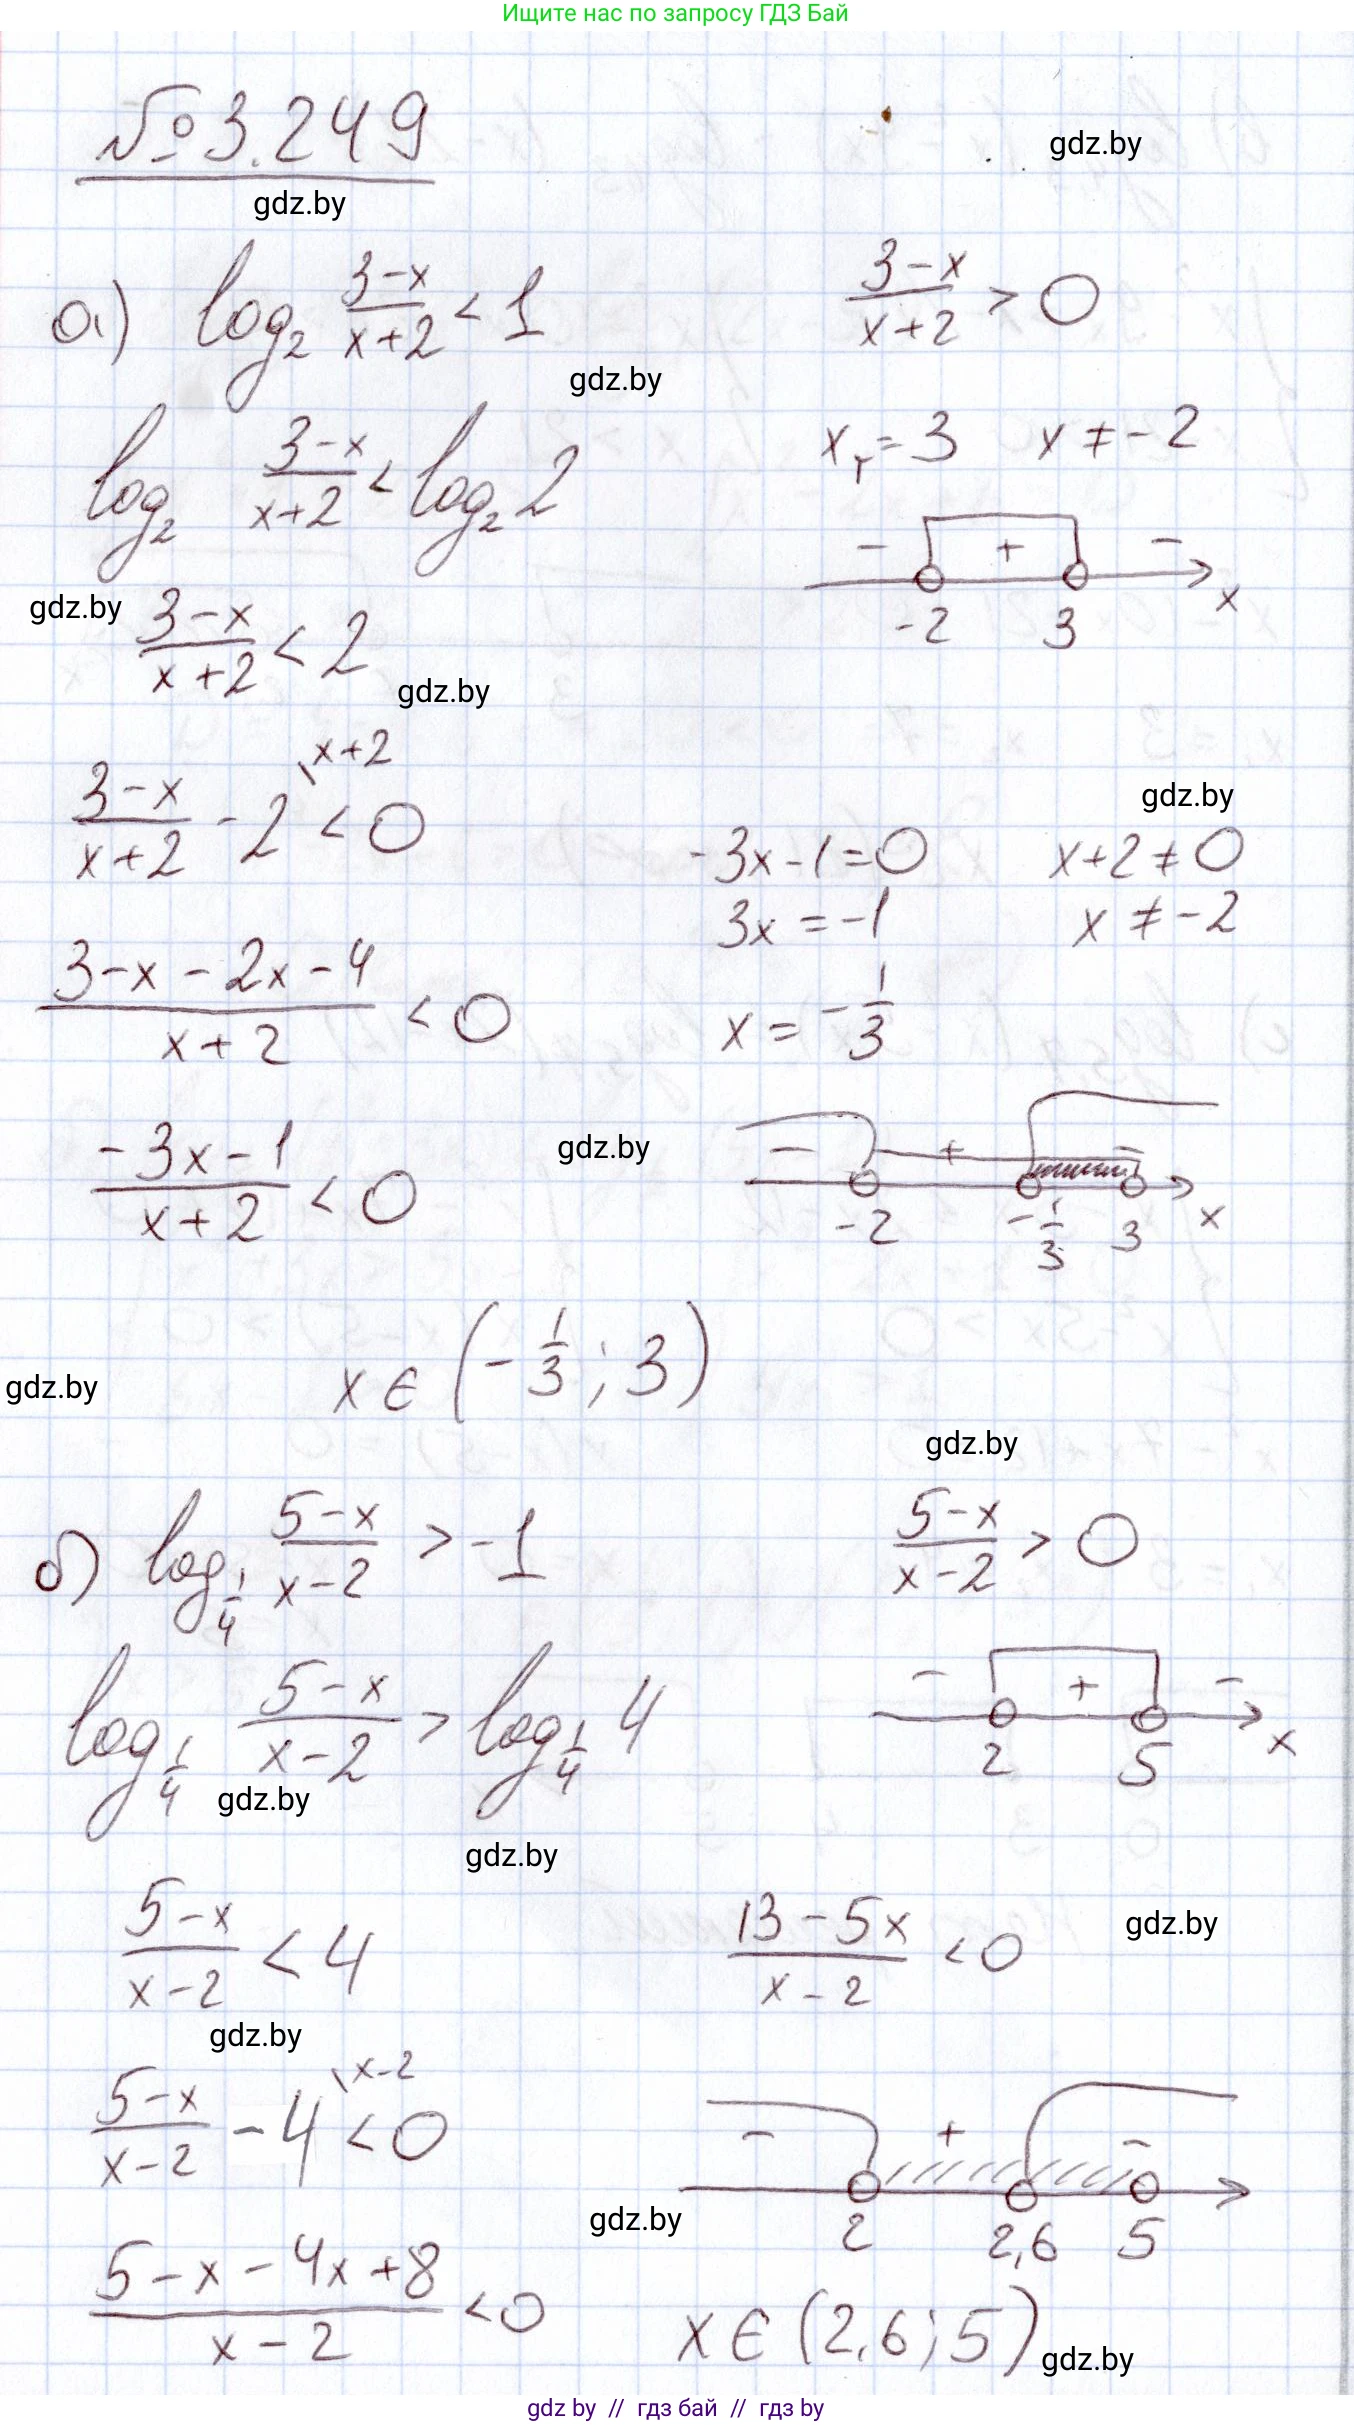 Ищите нас по запросу ГДЗ Бай
№3.249
gdz.by
gdz.by
а) log₂ (3-x)/(x+2) < 1
(3-x)/(x+2) > 0
gdz.by
log₂ (3-x)/(x+2) < log₂ 2
x_т = 3 x ≠ -2
- + -
-2 3 x
gdz.by
(3-x)/(x+2) < 2
gdz.by
(3-x)/(x+2) - 2 \x+2 < 0
gdz.by
-3x-1=0 x+2≠0
3x = -1 x ≠ -2
(3-x-2x-4)/(x+2) < 0
x = -1/3
(-3x-1)/(x+2) < 0
gdz.by
- + -
-2 -1/3 3 x
x ∈ (-1/3; 3)
gdz.by
gdz.by
б) log_1/4 (5-x)/(x-2) > -1
(5-x)/(x-2) > 0
log_1/4 (5-x)/(x-2) > log_1/4 4
- + -
2 5 x
gdz.by
gdz.by
(5-x)/(x-2) < 4
(13-5x)/(x-2) < 0
gdz.by
gdz.by
(5-x)/(x-2) - 4 \x-2 < 0
- + -
2 2,6 5
gdz.by
(5-x-4x+8)/(x-2) < 0
x ∈ (2,6; 5)
gdz.by
gdz by // гдз бай // гдз by